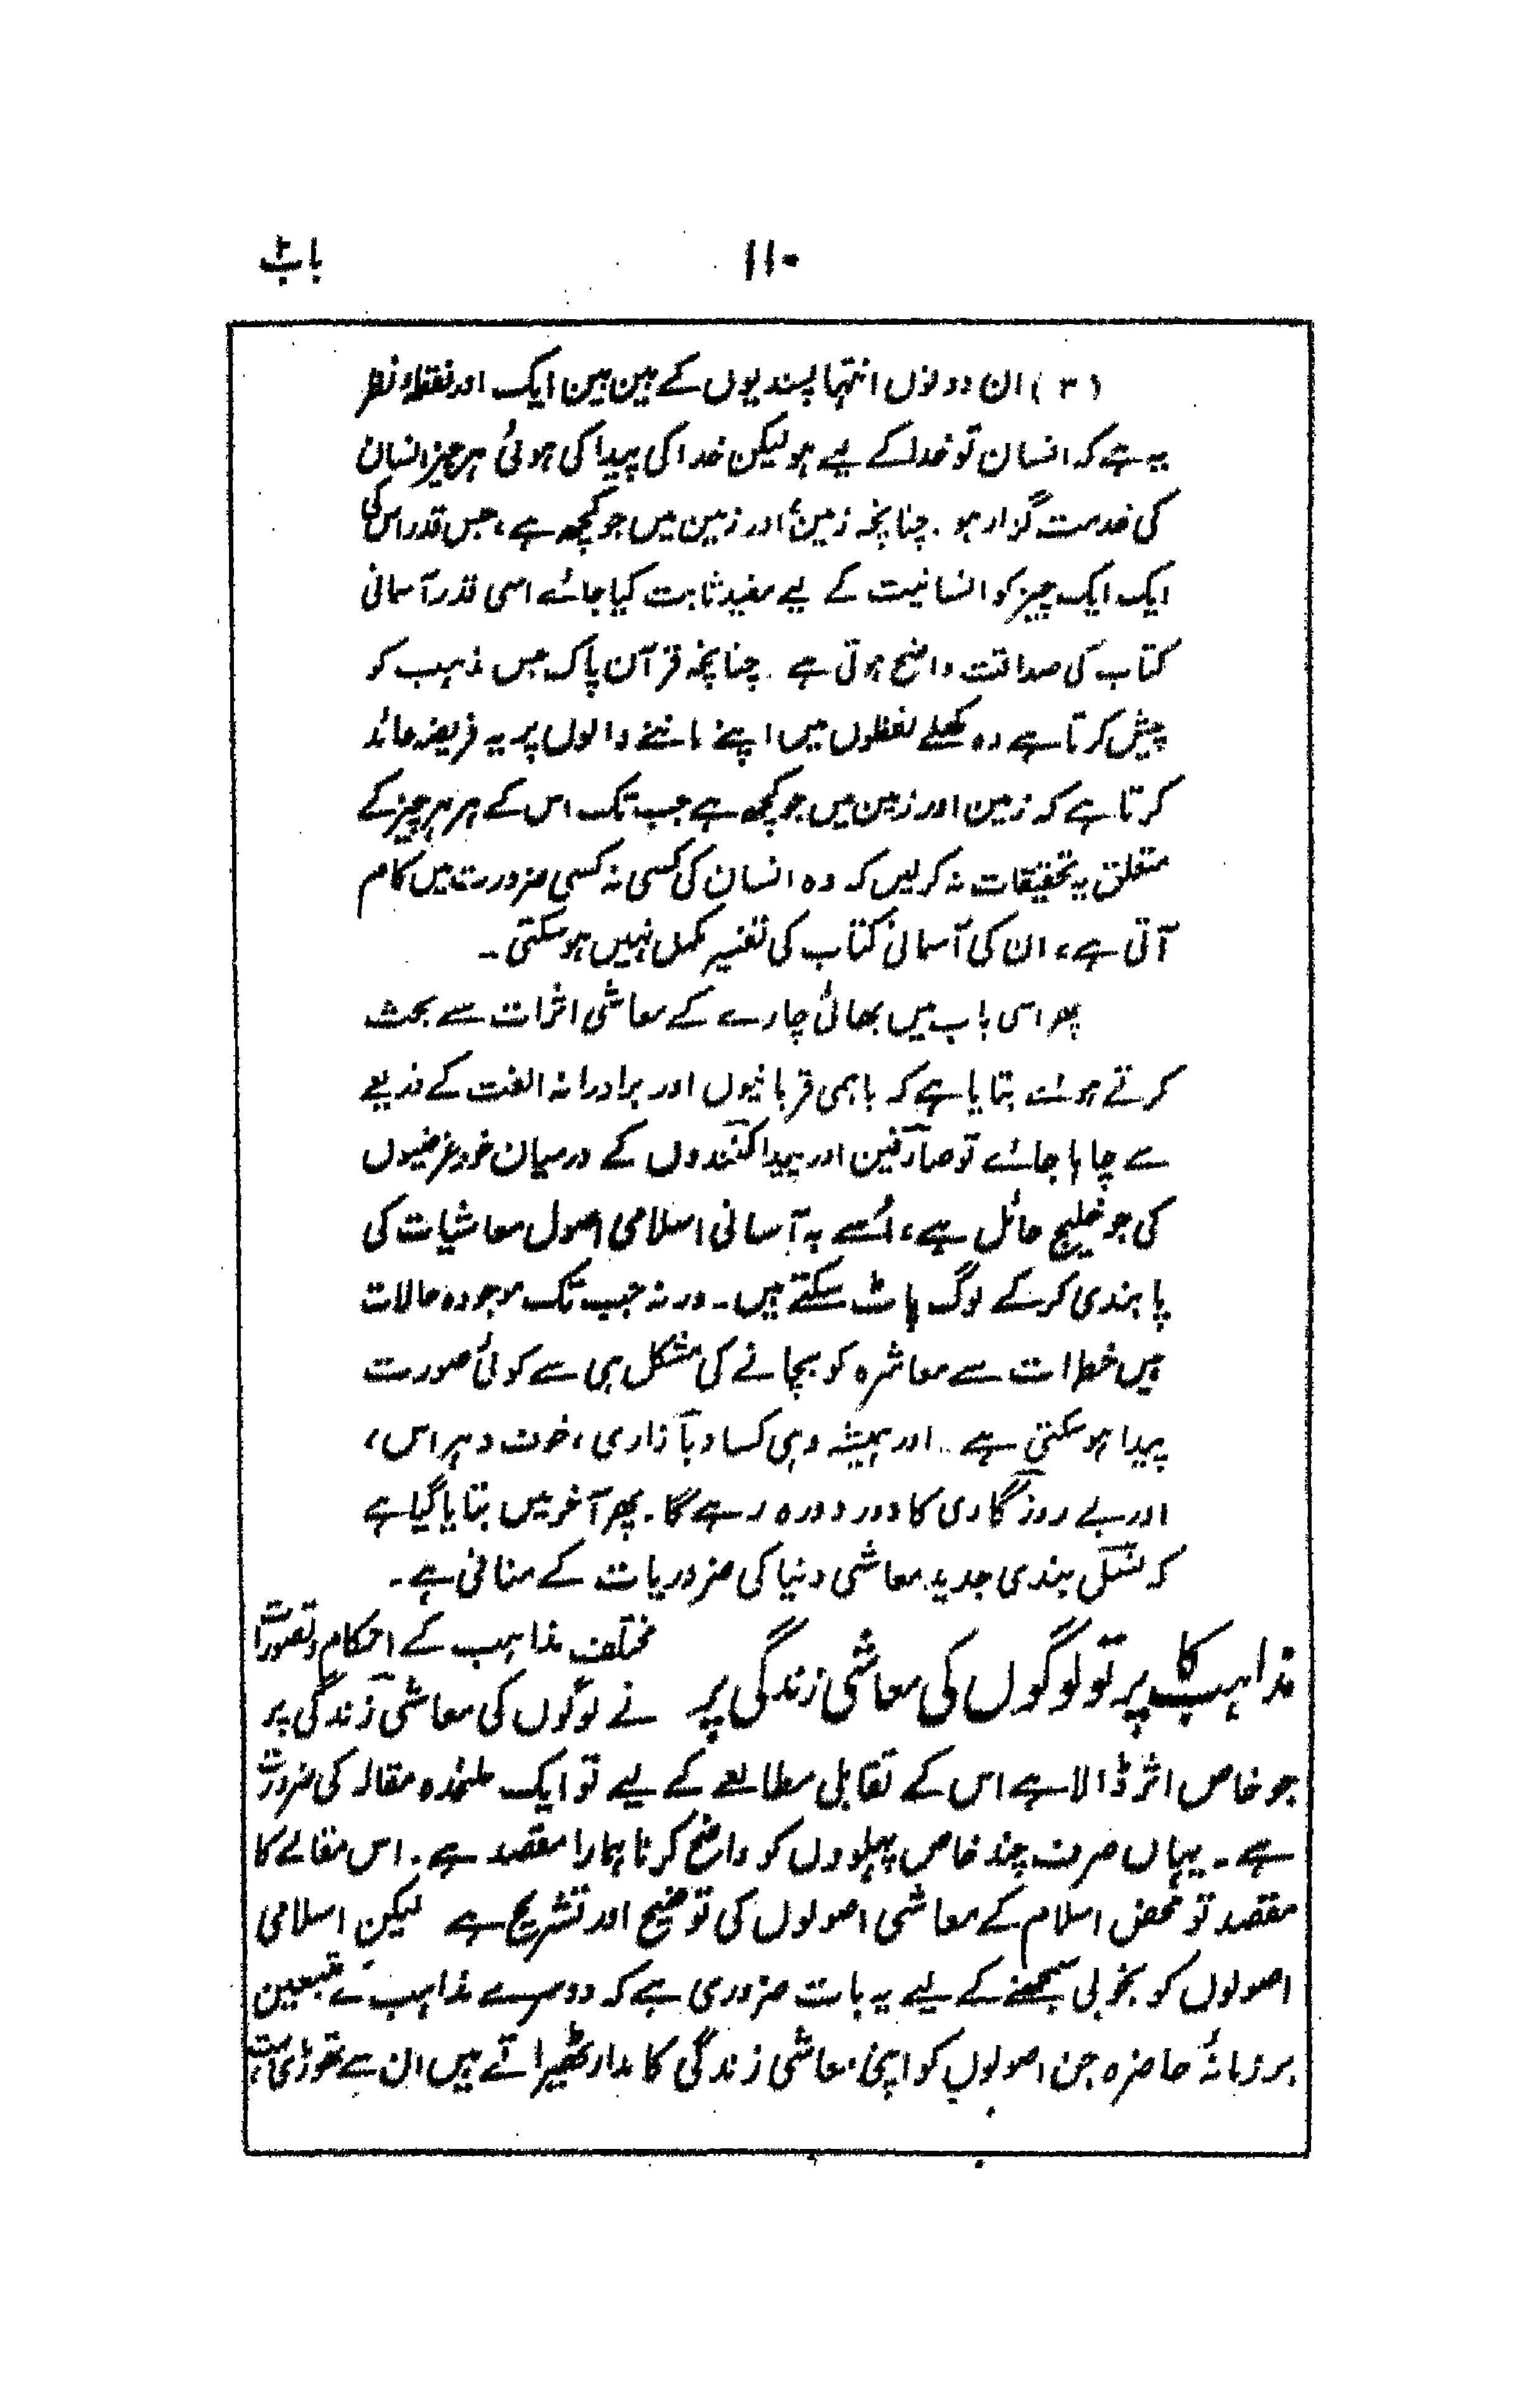 ۱۱۰
باب
(۳) ان دونوں انتہا پسندیوں کے بین بین ایک اور نقطۂ نظر
یہ ہے کہ انسان تو خدا کے لیے ہو لیکن خدا کی پیدا کی ہوئی ہر چیز انسان
کی خدمت گزار ہو۔ چنانچہ زمین اور زمین میں جو کچھ ہے، جس قدر اس کی
ایک ایک چیز کو انسانیت کے لیے مفید ثابت کیا جائے اسی قدر آسمانی
کتاب کی صداقت واضح ہوتی ہے۔ چنانچہ قرآن پاک جس مذہب کو
پیش کرتا ہے وہ کھلے لفظوں میں اپنے ماننے والوں پر یہ فریضہ عائد
کرتا ہے کہ زمین اور زمین میں جو کچھ ہے جب تک اس کے ہر ہر چیز کے
متعلق یہ تحقیقات نہ کرلیں کہ وہ انسان کی کسی نہ کسی ضرورت میں کام
آتی ہے، ان کی آسمانی کتاب کی تفسیر مکمل نہیں ہوسکتی۔
پھر اسی باب میں بھائی چارے کے معاشی اثرات سے بحث
کرتے ہوئے بتایا ہے کہ باہمی قربانیوں اور برادرانہ الفت کے ذریعے
سے چاہا جائے تو صارفین اور پیدا کنندوں کے درمیان خود غرضیوں
کی جو خلیج حائل ہے، اُسے بہ آسانی اسلامی اصول معاشیات کی
پابندی کرکے لوگ پاٹ سکتے ہیں۔ ورنہ جب تک موجودہ حالات
ہیں خطرات سے معاشرہ کو بچانے کی مشکل ہی سے کوئی صورت
پیدا ہوسکتی ہے۔ اور ہمیشہ وہی کساد بازاری، خوف و ہراس،
اور بے روزگاری کا دور دورہ رہے گا۔ پھر آخر میں بتایا گیا ہے
کہ نسل بندی جدید معاشی دنیا کی ضروریات کے منافی ہے۔
مذاہب کا پرتو لوگوں کی معاشی زندگی پر
مختلف مذاہب کے احکام و تصورات
نے لوگوں کی معاشی زندگی پر
جو خاص اثر ڈالا ہے اس کے تقابلی مطالعے کے لیے تو ایک علیٰحدہ مقالہ کی ضرورت
ہے۔ یہاں صرف چند خاص پہلووں کو واضح کرنا ہمارا مقصد ہے۔ اس مقالے کا
مقصد تو محض اسلام کے معاشی اصولوں کی توضیح اور تشریح ہے لیکن اسلامی
اصولوں کو بخوبی سمجھنے کے لیے یہ بات ضروری ہے کہ دوسرے مذاہب کے متبعین
بہ زمانۂ حاضرہ جن اصولوں کو اپنی معاشی زندگی کا مدار ٹھیراتے ہیں ان سے تھوڑی بہت